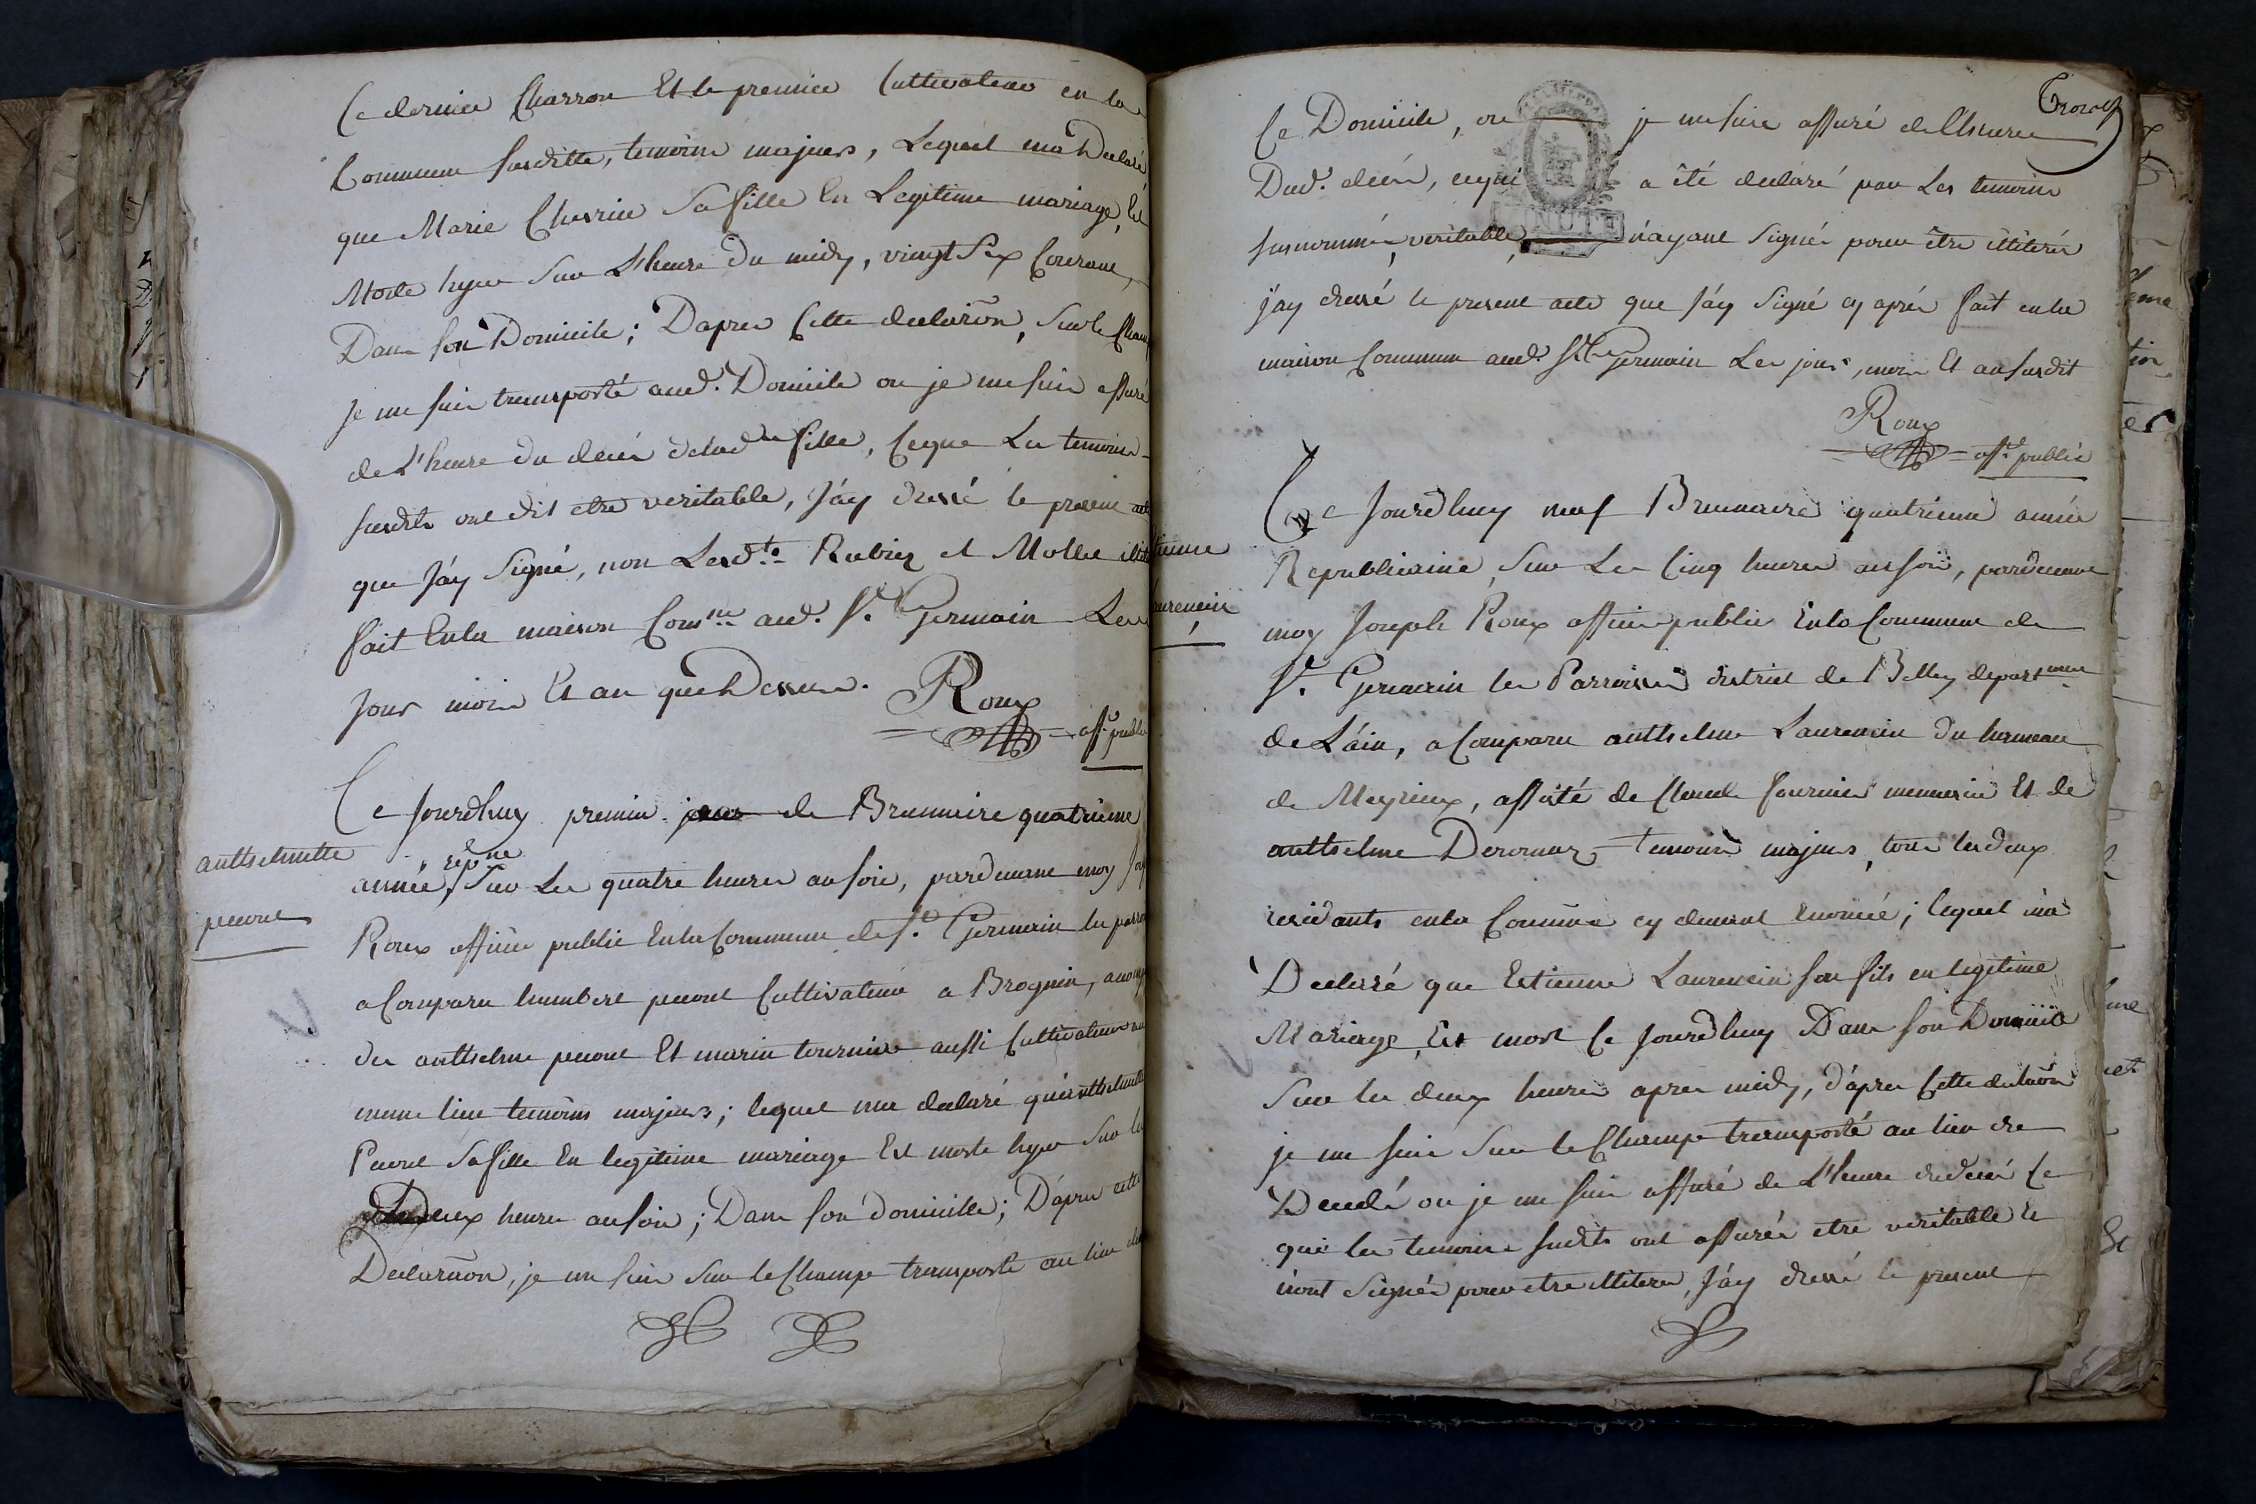 Ce dernier Charron Et le premier Cultivateur en la
Commune susditte, temoins majeurs, Lequel ma Declaré
que Marie Chevrier Sa fille En Legitime mariage, Est
Morte hyer Sur L'heure du midy, vingt Six Courant,
Dans son Domicile; Dapres Cette declaraõn, Sur le Champ
Je me suis transporté aud. Domicile ou je me suis assuré
de L'heure du decès delad.te fille, Ceque Les temoins
susdits ont dit etre veritable, J'ay dressé le present acte
que J'ay Signé, non Lesd.ts Rubier et Mollie
fait Enla maison Com.ne aud. S.t Germain Les
Jour mois Et an que Dessus.
Roux
off. public
anttselmette
pecout
Ce Jourdhuy premier jour de Brumaire quatrième
année rép.ne Sur Les quatre heures au soir, pardevant moy Jos
Roux officier public Enla Commune de S.t Germain les parroi
a Comparu humbert pecout Cultivateur a Brognin,
de anttselme pecout Et marin tournier aussi Cultivateur au
meme lieu temoins majeurs; lequel ma declaré qu'anttselmette
Pecout Sa fille En legitime mariage Est morte hyer Sur les
deux heures au soir; Dans son domicille; D'apres cette
Declaraõn, je me suis Sur le Champ transporté au lieu de
Trois
Ce Domicile, ou je me suis assuré de l'heure
Dud. decès, ce qui a été declaré par Les temoins
susnommés, veritable, n'ayant Signés pour être illiterés
j'ay dressé le present acte que J'ay Signé cy après fait en la
maison Commune aud. St Germain Les jour, mois Et an susdit
Roux
off. public
tienne
aurencin
Ce Jourdhuy neuf Brumaire quatrieme année
Republicaine, Sur Les Cinq heures au soir, pardevant
moy Joseph Roux officier public Enla Commune de
S.t Germain les Parroisses district de Belley depart.ment
de L'ain, a Comparu anttselme Laurencin du hameau
de Meyrieux, assisté de Claude fournier menusier Et de
anttselme Derornaz temoins majeurs, tous les deux
residants enla Commune cy devant Enoncée; lequel m'a
Declarré que Estienne Laurencin son fils en legitime
Mariage, Est mort Ce Jourdhuy Dans son Domicile
Sur les deux heures apres midy, d'apres Cette declaraõn
je me suis Sur le Champ transporté au lieu de
Decedé ou je me suis assuré de L'heure dud decés Ce
que les temoins susdits ont assurés etre veritable et
n'ont Signés pour etre illiteres, J'ay dressé le present